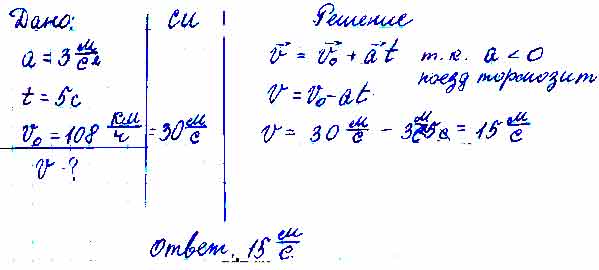 Дано:
a = 3 м/с²
t = 5с
v₀ = 108 км/ч
v - ?
СИ
= 30 м/с
Решение
v⃗ = v⃗₀ + a⃗t т.к. a < 0
поезд тормозит
v = v₀ - at
v = 30 м/с - 3 м/с² 5с = 15 м/с
Ответ. 15 м/с